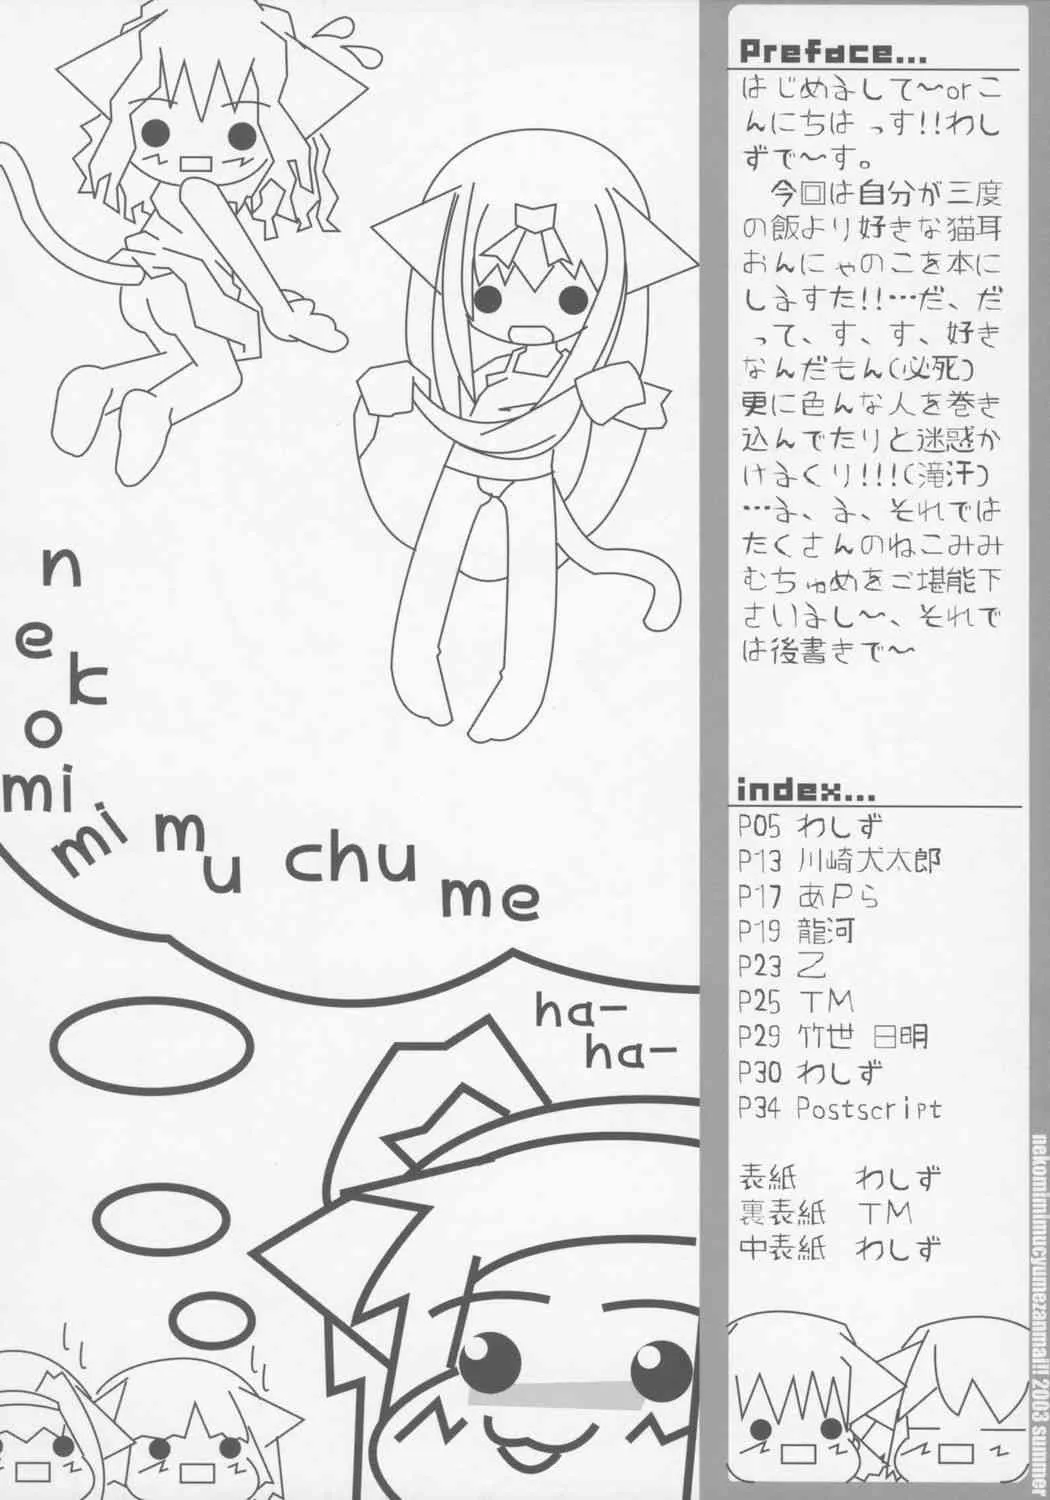 Preface...
はじめまして～orこ
んにちは っす!!わし
ずで～す。
今回は自分が三度
の飯より好きな猫耳
おんにゃのこを本に
しますた!!…だ、だ
って、す、す、好き
なんだもん(必死)
更に色んな人を巻き
込んでたりと迷惑か
けまくり!!!(滝汗)
…ま、ま、それでは
たくさんのねこみみ
むちゅめをご堪能下
さいまし～、それで
は後書きで～
index...
P05 わしず
P13 川崎犬太郎
P17 あPら
P19 龍河
P23 乙
P25 TM
P29 竹世 日明
P30 わしず
P34 Postscript
表紙 わしず
裏表紙 TM
中表紙 わしず
nekomimimucyumezanmai!! 2003 summer
nekomimi mimuchume
ha-
ha-